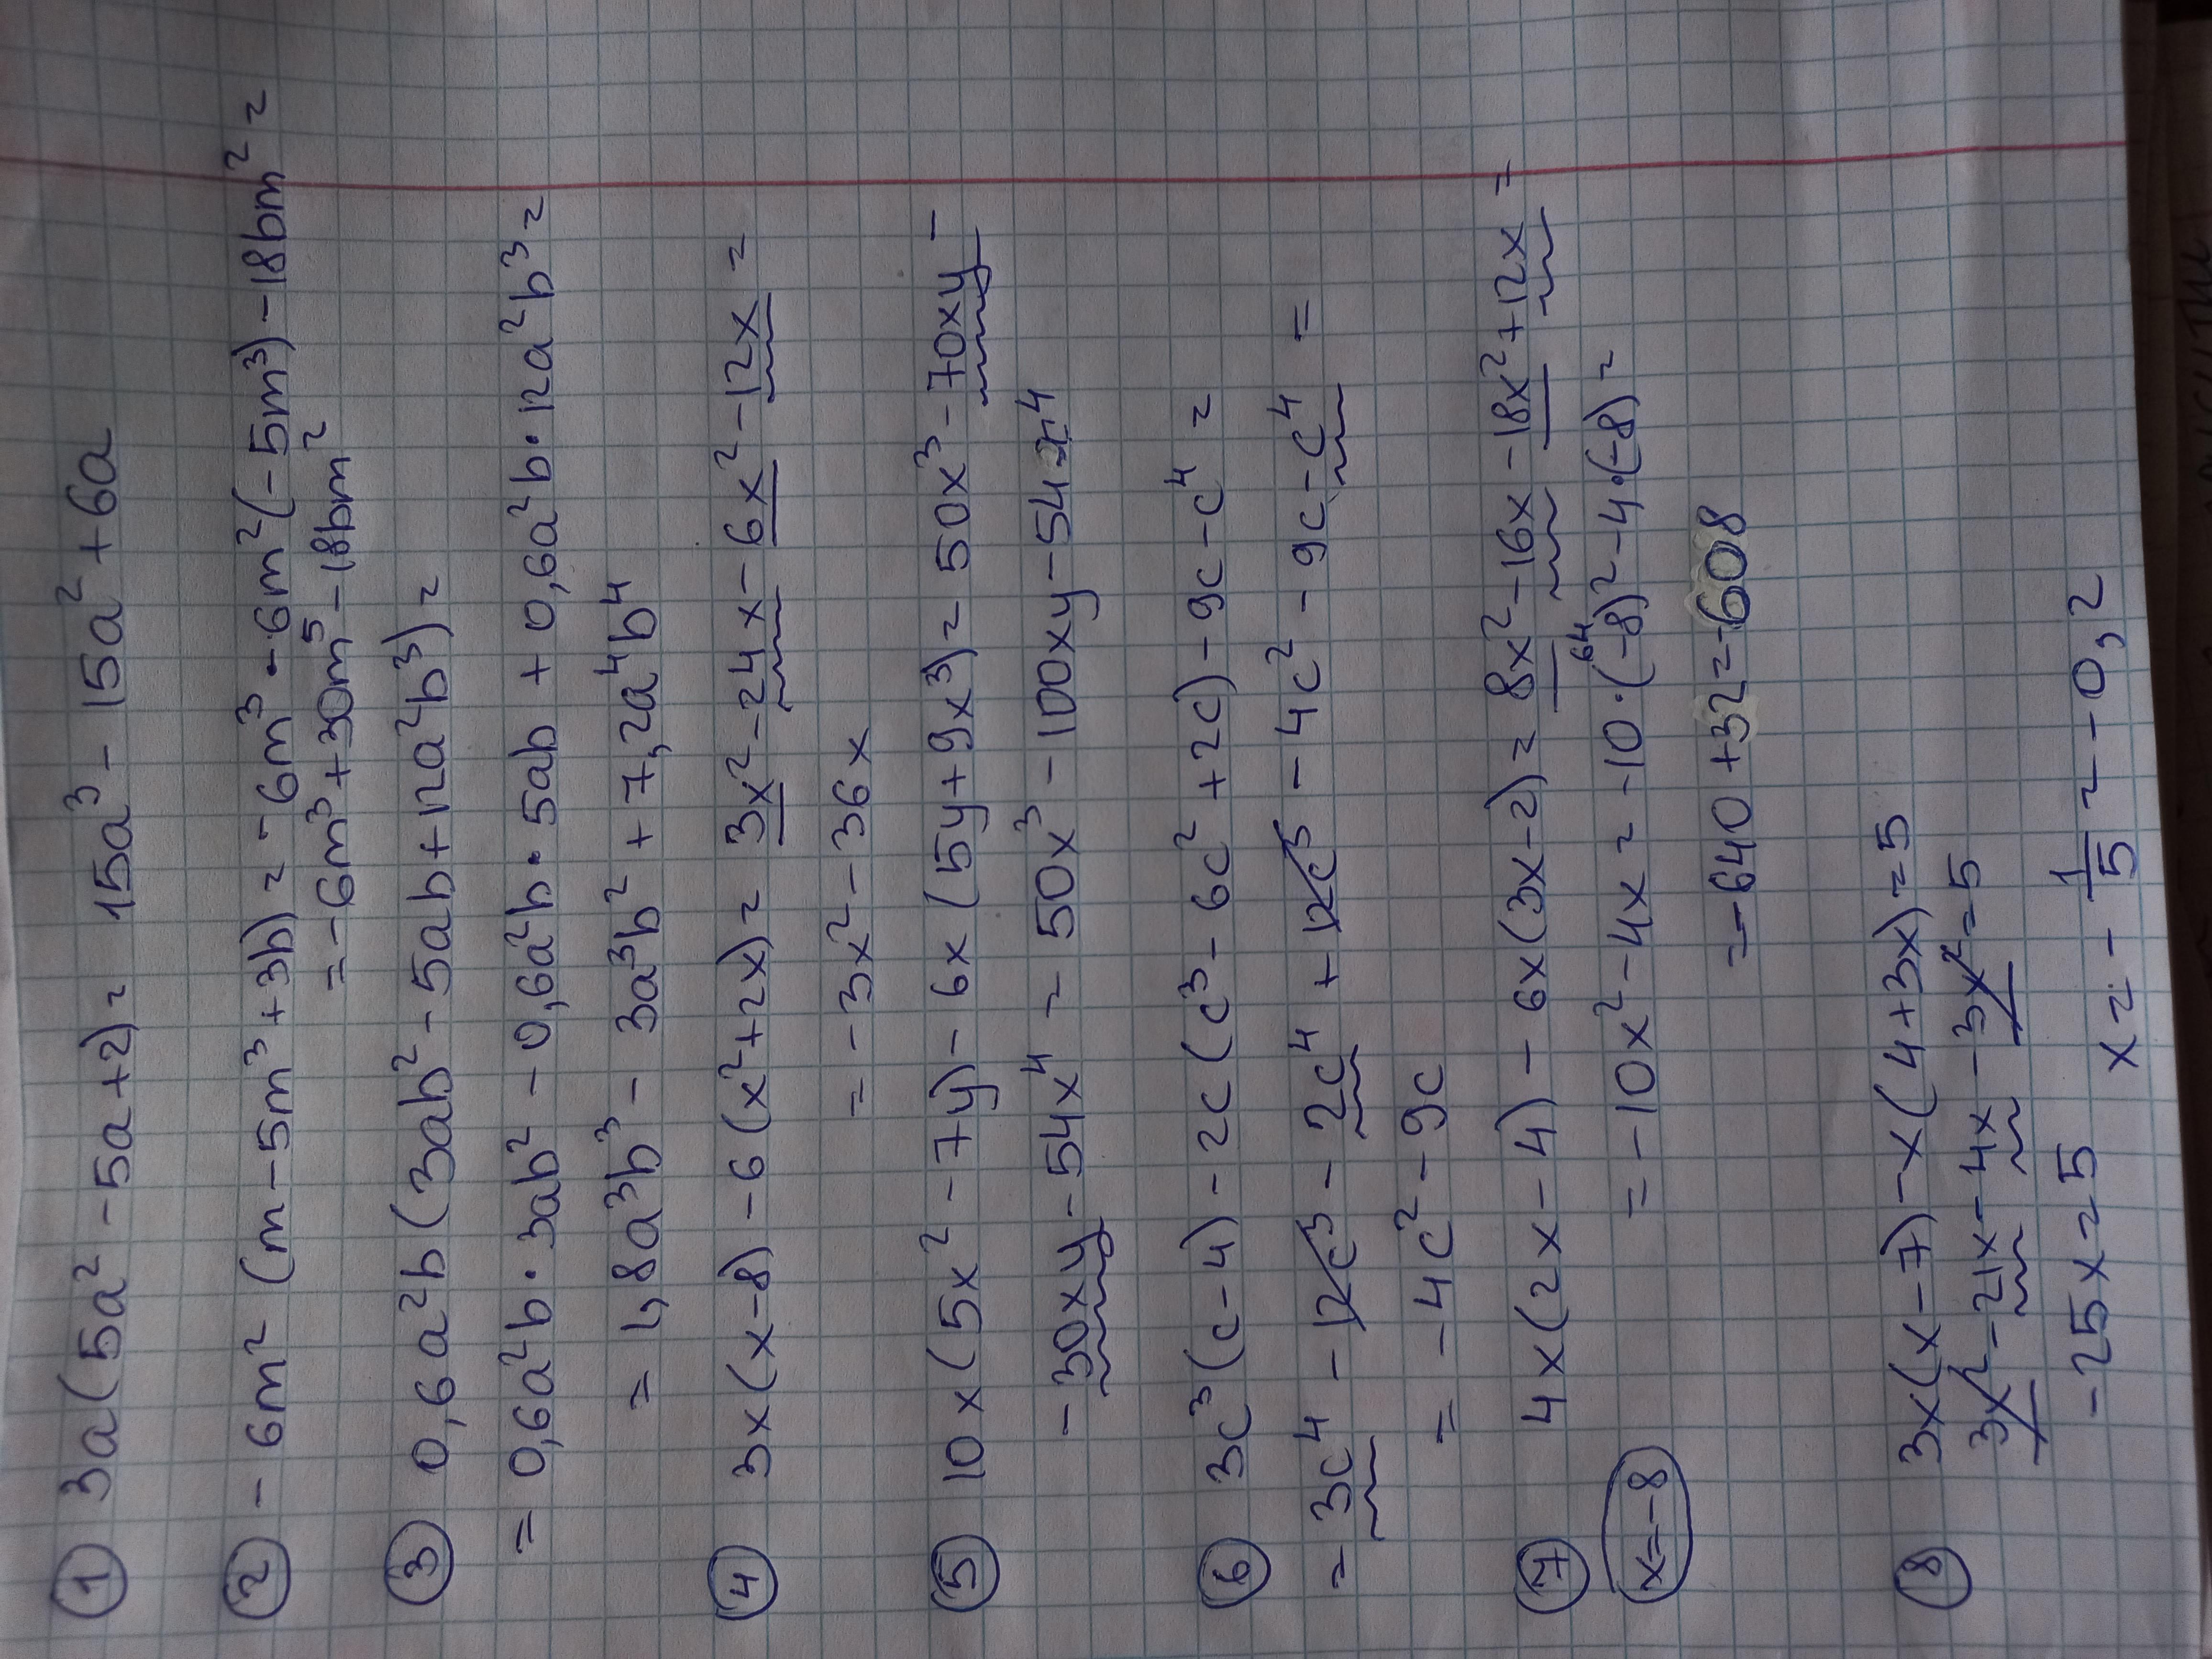 ① 3a(5a² - 5a + 2) = 15a³ - 15a² + 6a
② - 6m² (m - 5m³ + 3b) = - 6m³ - 6m²(- 5m³) - 18bm² =
= - 6m³ + 30m⁵ - 18bm²
③ 0,6a²b(3ab² - 5ab + 12a²b³) =
= 0,6a²b · 3ab² - 0,6a²b · 5ab + 0,6a²b · 12a²b³ =
= 1,8a³b³ - 3a³b² + 7,2a⁴b⁴
④ 3x(x - 8) - 6(x² + 2x) = 3x² - 24x - 6x² - 12x =
= - 3x² - 36x
⑤ 10x(5x² - 7y) - 6x(5y + 9x³) = 50x³ - 70xy -
- 30xy - 54x⁴ = 50x³ - 100xy - 54x⁴
⑥ 3c³(c - 4) - 2c(c³ - 6c² + 2c) - 9c - c⁴ =
= 3c⁴ - 12c³ - 2c⁴ + 12c³ - 4c² - 9c - c⁴ =
= - 4c² - 9c
⑦ 4x(2x - 4) - 6x(3x - 2) = 8x² - 16x - 18x² + 12x =
x = -8 = - 10x² - 4x = - 10 · (-8)² - 4 · (-8) =
64
= - 640 + 32 = - 608
⑧ 3x(x - 7) - x(4 + 3x) = 5
3x² - 21x - 4x - 3x² = 5
- 25x = 5 x = - 1/5 = - 0,2